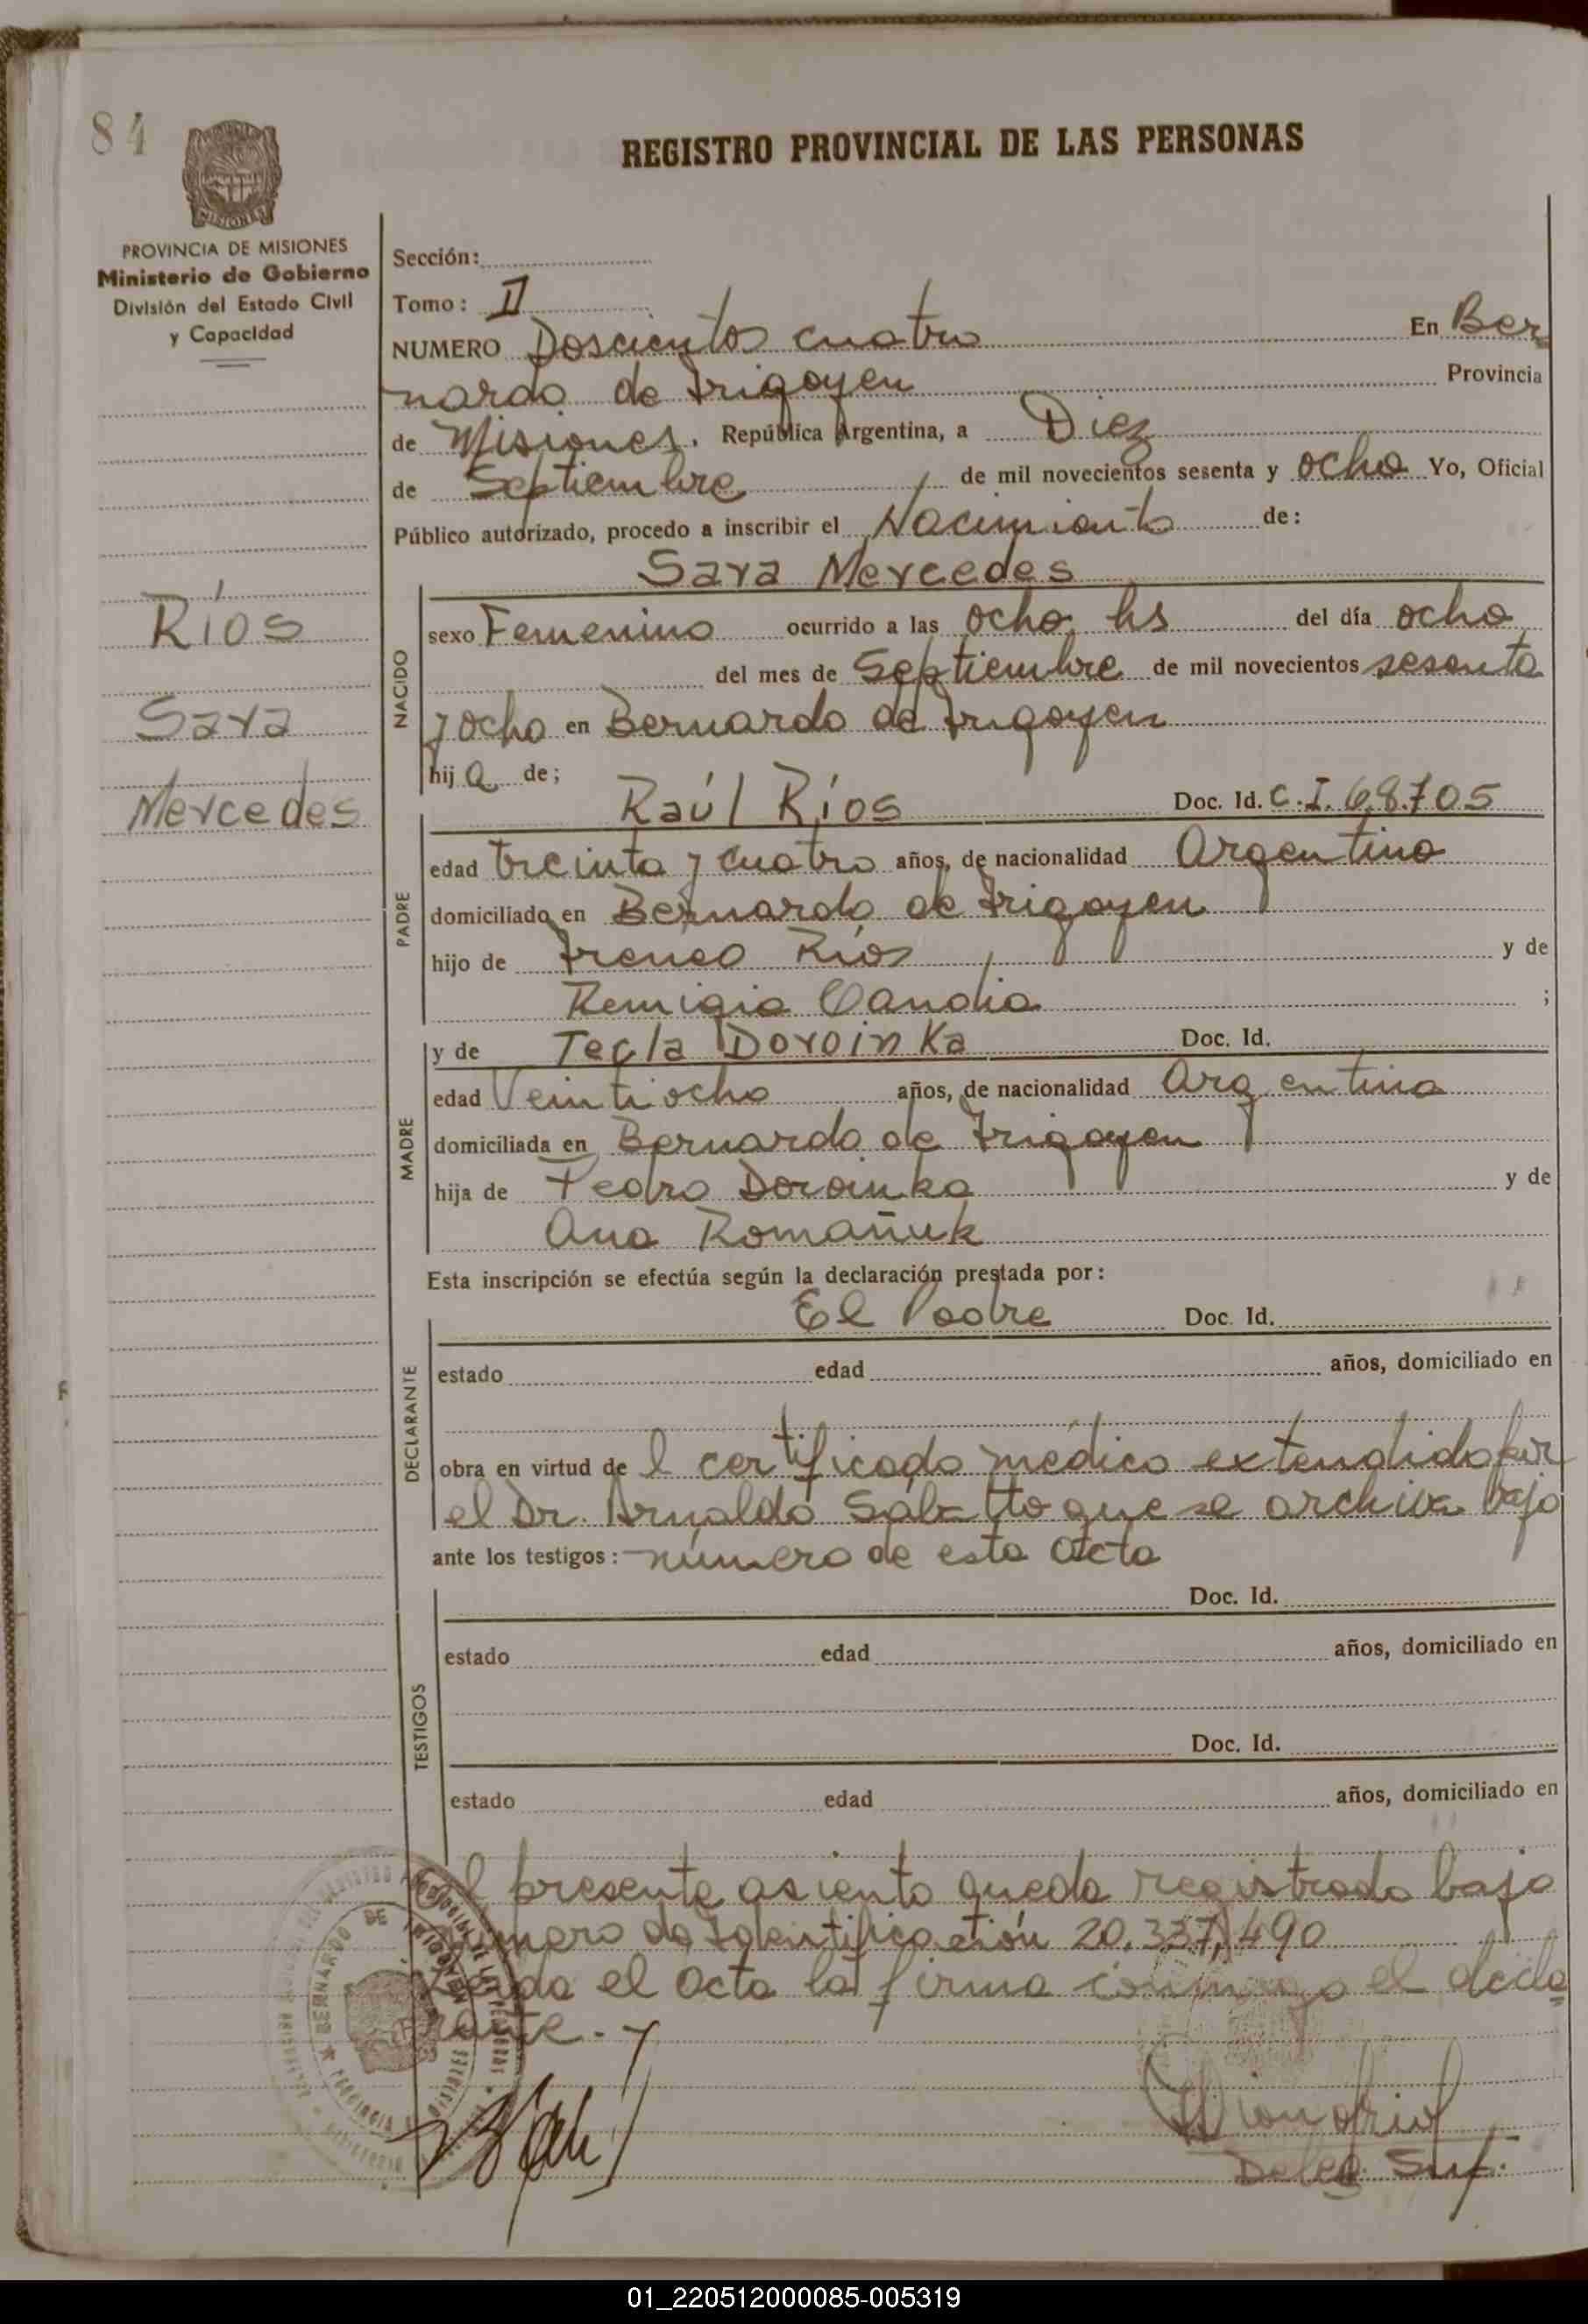 84
REGISTRO PROVINCIAL DE LAS PERSONAS
PROVINCIA DE MISIONES
Ministerio de Gobierno
División del Estado Civil
y Capacidad
Ríos
Sara
Mercedes
Sección:
Tomo: II
NUMERO Doscientos cuatro En Ber
nardo de Irigoyen Provincia
de Misiones. República Argentina, a Diez
de Septiembre de mil novecientos sesenta y ocho Yo, Oficial
Público autorizado, procedo a inscribir el Nacimiento de:
Sara Mercedes
NACIDO
sexo Femenino ocurrido a las ocho hs del día ocho
del mes de Septiembre de mil novecientos sesenta
y ocho en Bernardo de Irigoyen
hij a de;
Raúl Ríos Doc. Id. C.I. 68.705
PADRE
edad treinta y cuatro años, de nacionalidad Argentina
domiciliado en Bernardo de Irigoyen
hijo de Ireneo Ríos y de
Remigia Candia ;
y de Tecla Doroinka Doc. Id.
MADRE
edad Veintiocho años, de nacionalidad Argentina
domiciliada en Bernardo de Irigoyen
hija de Pedro Doroinka y de
Ana Romañuk
Esta inscripción se efectúa según la declaración prestada por:
El Padre Doc. Id.
DECLARANTE
estado edad años, domiciliado en
obra en virtud de l certificado médico extendido por
el Dr. Arnaldo que se archiva bajo
ante los testigos: número de esta acta
Doc. Id.
TESTIGOS
estado edad años, domiciliado en
Doc. Id.
estado edad años, domiciliado en
El presente asiento queda registrado bajo
número de Identificación 20.337.490
Leida el acta la firma conmigo el decla
rante.-
BERNARDO DE IRIGOYEN
01_220512000085-005319